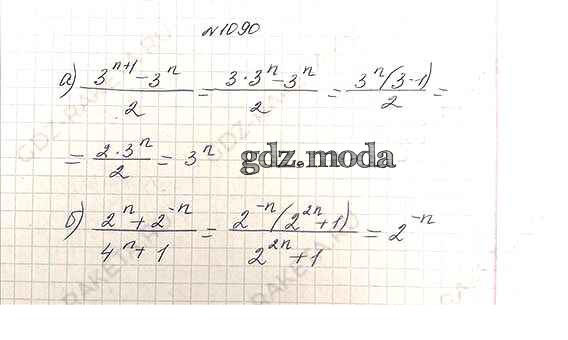 №1090
а) (3^(n+1) - 3^n)/2 = (3·3^n - 3^n)/2 = (3^n(3-1))/2 =
= (2·3^n)/2 = 3^n
gdz.moda
б) (2^n + 2^(-n))/(4^n + 1) = (2^(-n)(2^(2n) + 1))/(2^(2n) + 1) = 2^(-n)